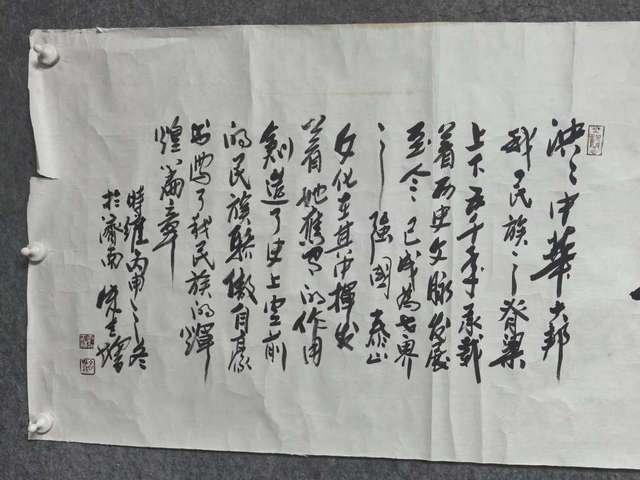 泱泱中華大邦
我民族之脊梁
上下五千年承載
着历史文脉发展
至今已成為世界
之強國 泰山
文化在其中揮发
着她的作用
創造了史上空前
的民族骄傲自豪
书写了我民族的輝
煌篇章
時維丙申之冬
於濟南